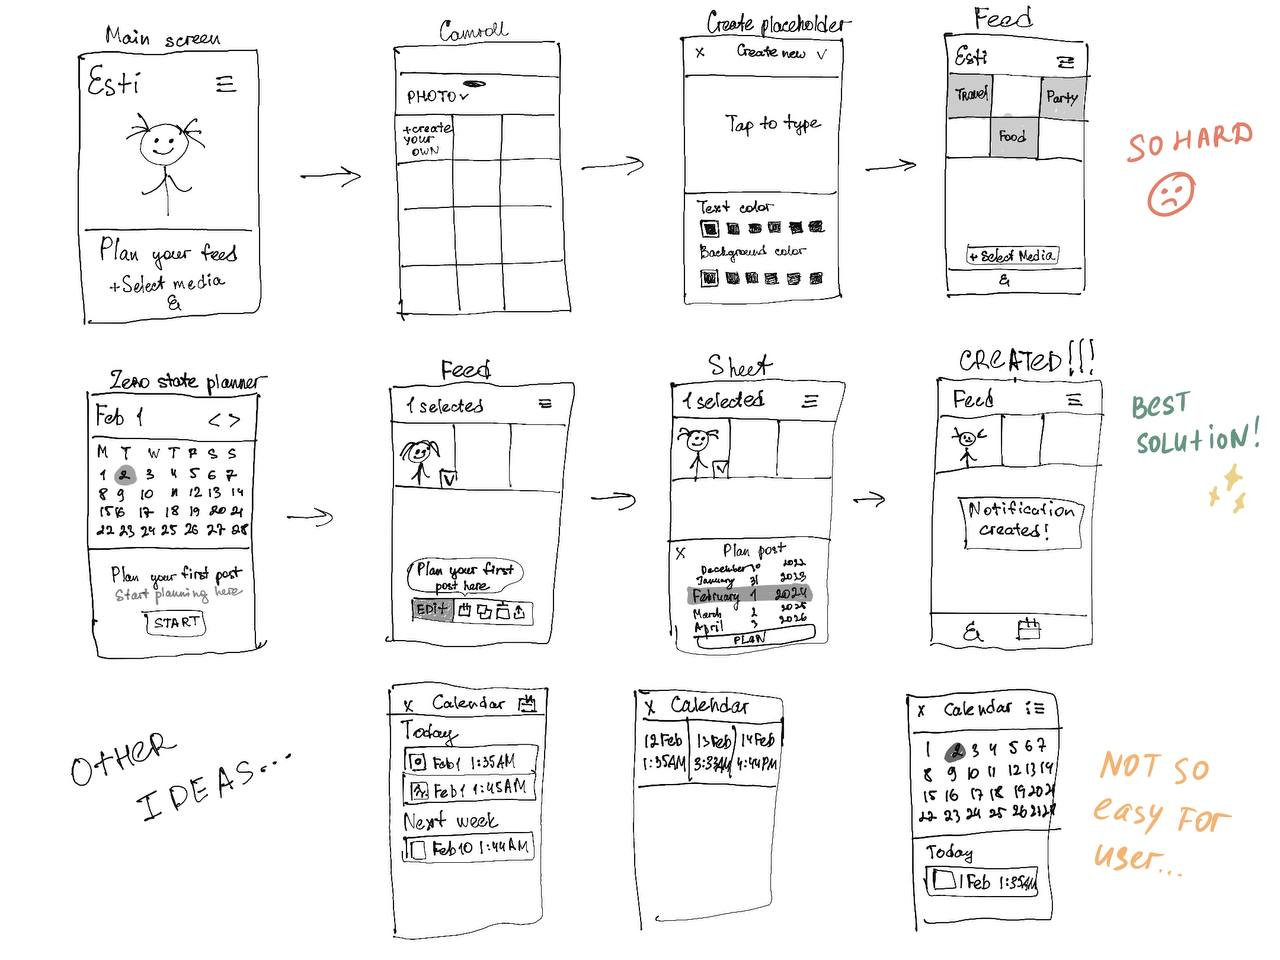 Main screen
Esti
Plan your feed
+Select media
&
Camroll
PHOTO
+create
your
own
Create placeholder
x Create new
Tap to type
Text color
Background color
Feed
Esti
Travel
Party
Food
+ Select Media
&
SO HARD
Zero state planner
Feb 1 < >
M T W T F S S
1 2 3 4 5 6 7
8 9 10 11 12 13 14
15 16 17 18 19 20 21
22 23 24 25 26 27 28
Plan your first post
Start planning here
START
Feed
1 selected
Plan your first
post here
Edit
Sheet
1 selected
x Plan post
December 30 2022
January 31 2023
February 1 2024
March 2 2025
April 3 2026
PLAN
CREATED!!!
Feed
Notification
created!
&
BEST
SOLUTION!
OTHER
IDEAS...
x Calendar
Today
Feb1 1:35AM
Feb1 1:45AM
Next week
Feb10 1:44AM
x Calendar
12Feb 13Feb 14Feb
1:35AM 3:33AM 4:44PM
x Calendar
1 2 3 4 5 6 7
8 9 10 11 12 13 14
15 16 17 18 19 20 21
22 23 24 25 26 27 28
Today
1Feb 1:35AM
NOT SO
easy FOR
user...